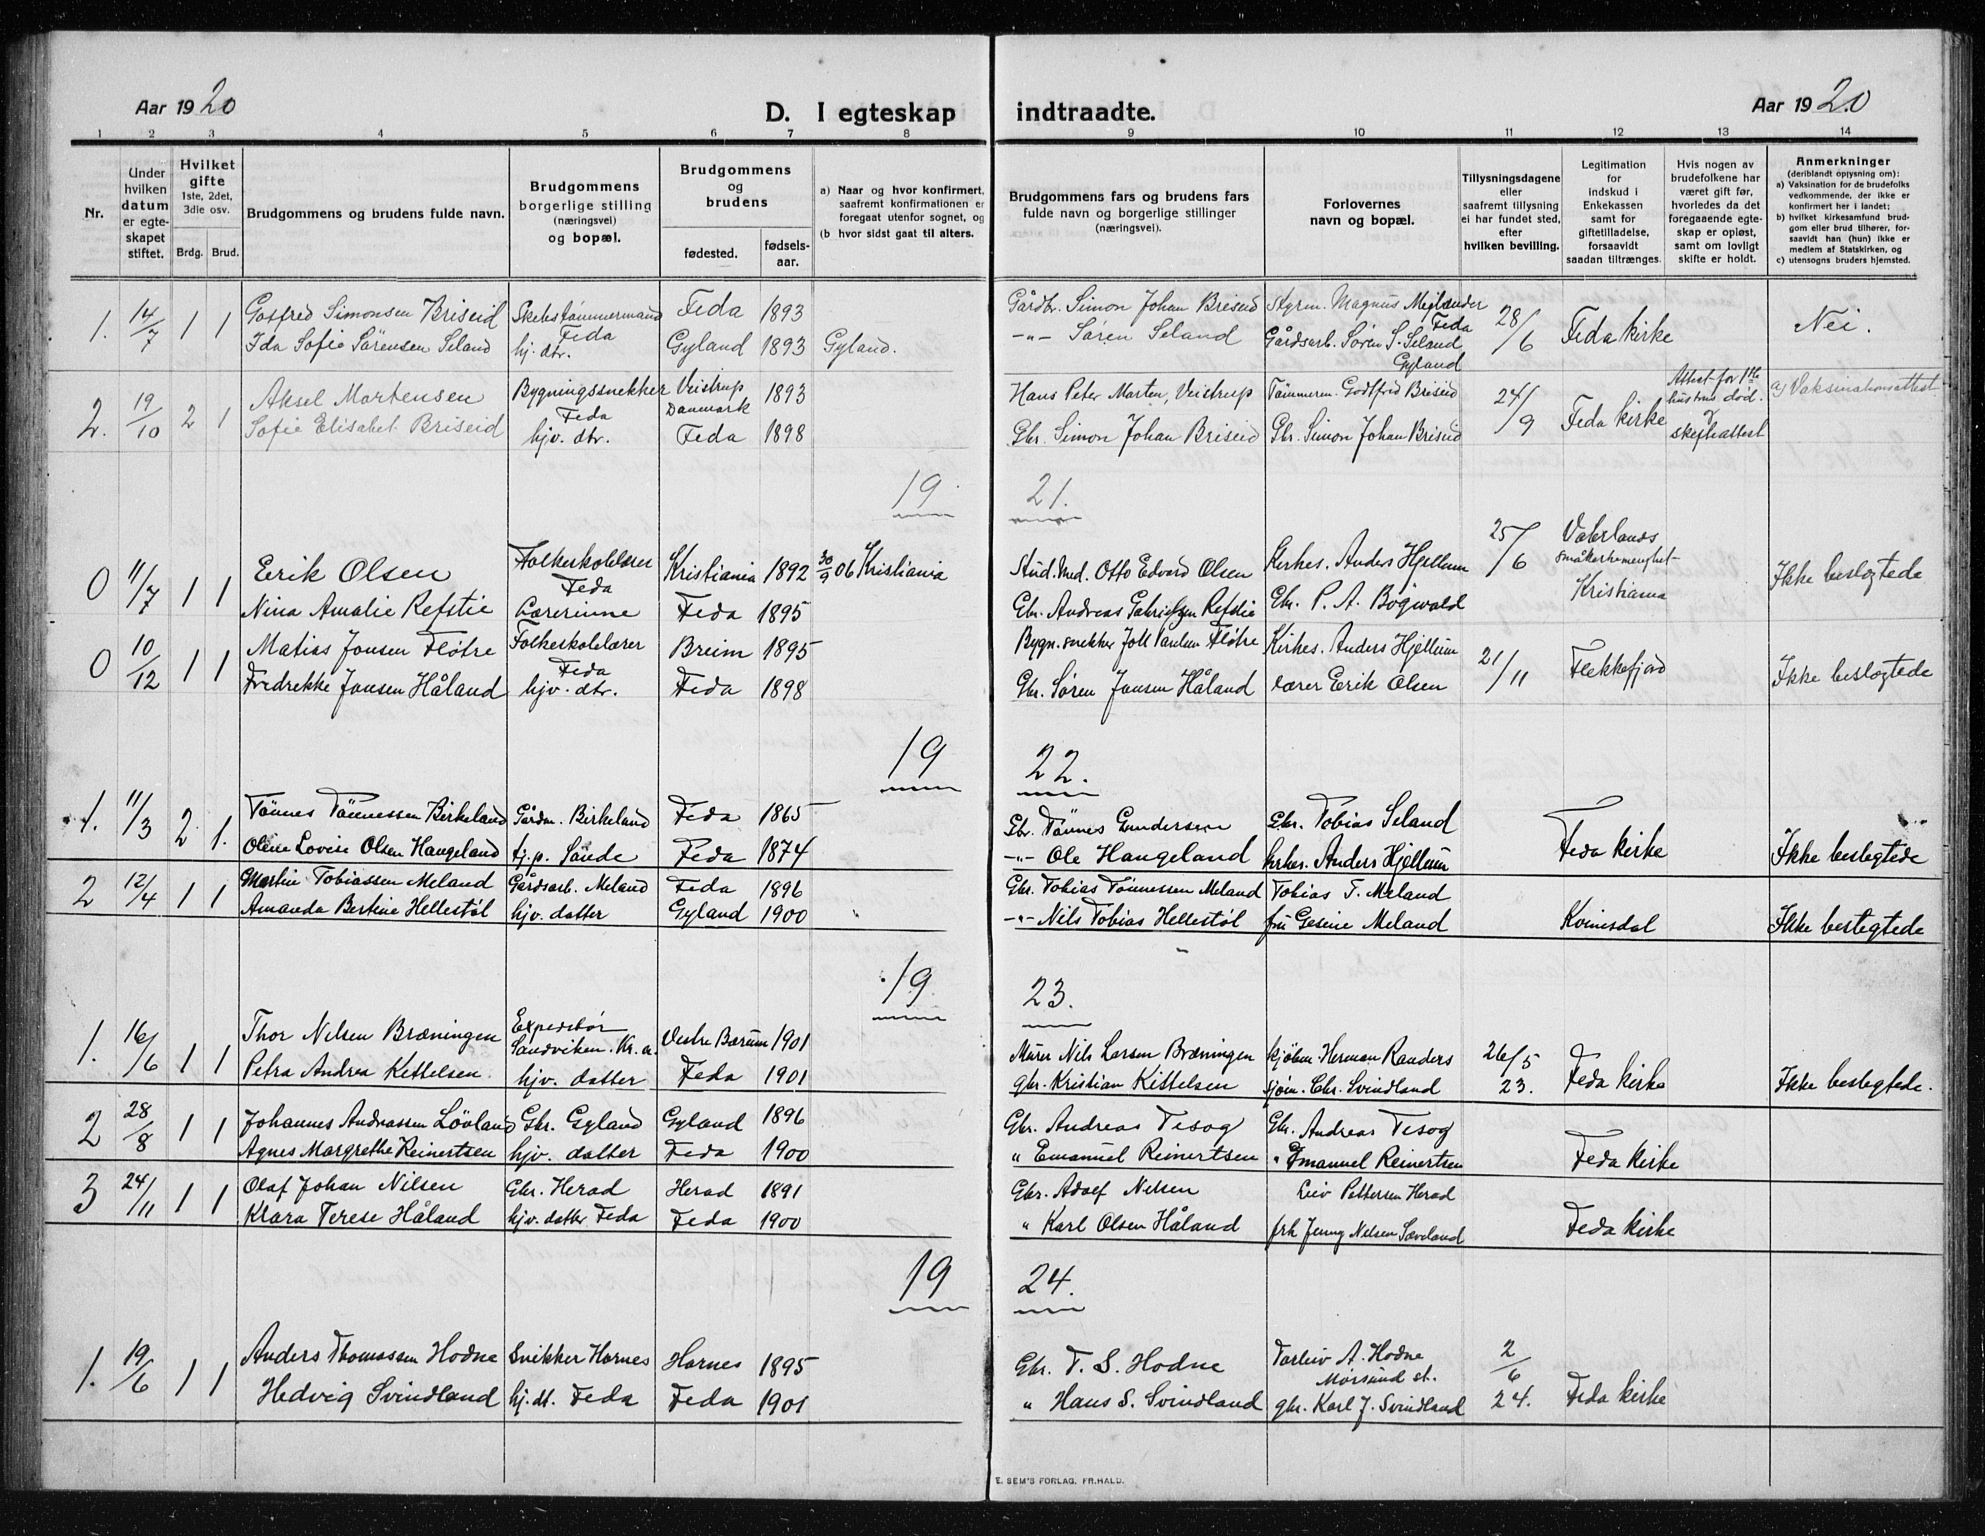 Aar 1920
D. I egteskap indtraadte.
Aar 1920
1 2 3 4 5 6 7 8 9 10 11 12 13 14
Nr.
Under hvilken datum er egte-skapet stiftet.
Hvilket gifte 1ste, 2det, 3die osv.
Brdg. Brud.
Brudgommens og brudens fulde navn.
Brudgommens borgerlige stilling (næringsvei) og bopæl.
Brudgommens og brudens
fødested. fødsels-aar.
a) Naar og hvor konfirmert, saafremt konfirmationen er foregaat utenfor sognet, og
(b hvor sidst gaat til alters.
Brudgommens fars og brudens fars fulde navn og borgerlige stillinger (næringsvei).
Forlovernes navn og bopæl.
Tillysningsdagene eller saafremt tillysning ei har fundet sted, efter hvilken bevilling.
Legitimation for indskud i Enkekassen samt for giftetilladelse, forsaavidt saadan tiltrænges.
Hvis nogen av brudefolkene har været gift før, hvorledes da det foregaaende egte-skap er opløst, samt om lovligt skifte er holdt.
Anmerkninger (deriblandt opysning om):
a) Vaksination for de brudefolks vedkommende, der ikke er konfirmert her i landet;
b) hvilket kirkesamfund brud-gom eller brud tilhører, for-saavidt han (hun) ikke er medlem av Statskirken, og
c) utensogns bruders hjemsted.
1. 14/7 1 1 Gotfred Simonsen Briseid Skibstømmermand Feda Feda 1893 Gårdbr. Simon Johan Briseid Styrm. Magnus Mejlænder Feda 28/6 Feda kirke Nei.
Ida Sofie Sørensen Seland hj. dtr. Gyland 1893 Gyland. -"- Søren Seland Gårdsarb. Søren S. Seland Gyland
2. 19/10 2 1 Aksel Mortensen Bygningssnekker Feda Veistrup Danmark 1893 Hans Peter Morten, Veistrup Tømmerm. Godtfred Briseid 24/9 Feda kirke Attest for 1ste hustrus død. skifteattest a) Vaksinationsattest
Sofie Elisabet Briseid hjv. dtr. Feda 1898 Gbr. Simon Johan Briseid Gbr. Simon Johan Briseid
19 21.
0 11/7 1 1 Erik Olsen Folkeskolelærer Feda Kristiania 1892 30/9 06 Kristiania Stud. Med. Otto Edvard Olsen Kirkes. Anders Hjellum 25/6 Vaterlands småkirkemenighet Kristiania Ikke beslegtede
Nina Amalie Refstie Lærerinne Feda 1895 Gbr. Andreas Gabrielsen Refstie Gbr. P. A. Bøgwald
0 10/12 1 1 Matias Jonsen Fløtre Folkeskolelærer Feda Breim 1895 Bygn. snekker Joh Paulsen Fløtre Kirkes. Anders Hjellum 21/11 Flekkefjord Ikke beslegtede
Fredrekke Jansen Håland hjv. dtr. Feda 1898 Gbr. Søren Jansen Håland lærer Erik Olsen
19 22.
1. 11/3 2 1. Tønnes Tønnessen Birkeland Gårdm. Birkeland Feda 1865 Gbr. Tønnes Gundersen Gbr. Tobias Seland Feda kirke Ikke beslegtede
Oline Lovise Olsen Haugeland tj. p. Sande Feda 1874 -"- Ole Haugeland kirkes. Anders Hjellum
2 12/4 1 1 Martin Tobiassen Meland Gårdsarb. Meland Feda 1896 Gbr. Tobias Tønnessen Meland Tobias T. Meland Kvinesdal Ikke beslegtede
Amanda Bertine Hellestøl hjv. datter Gyland 1900 " -"- Nils Tobias Hellestøl fru Gesine Meland
19 23.
1. 16/6 1 1 Thor Nilsen Bræningen Expeditør Sandviken. Kr. a. Vestre Bærum 1901 Murer Nils Larsen Bræningen kjøbm. Herman Randers 26/5 23. Feda kirke Ikke beslegtede.
Petra Andrea Kittelsen hjv. datter Feda 1901 gbr. Kristian Kittelsen sjøm. Chr. Svindland
2 28/8 1 1 Johannes Andreassen Løvland Gbr. Gyland Gyland 1896 Gbr. Andreas Tisog Gbr. Andreas Tisog Feda kirke
Agnes Margrethe Reinertsen hjv. datter Feda 1900 " Emanuel Reinertsen " Emanuel Reinertsen
3 24/11 1 1 Olaf Johan Nilsen Gbr. Herad Herad 1891 Gbr. Adolf Nilsen Leiv Pettersen Herad Feda kirke
Klara Terese Håland hjv. datter Feda Feda 1900 " Karl Olsen Håland frk Jenny Nilsen Sæveland
19 24.
1. 19/6 1 1 Anders Thomassen Hodne Snikker Hornes Hornes 1895 Gbr. T. S. Hodne Torleiv A. Hodne Morsund st. 2/6 24. Feda kirke
Hedvig Svindland hj. dt. Feda Feda 1901 " Hans S. Svindland gbr. Karl J. Svindland
E. SEM'S FORLAG, FR.HALD.